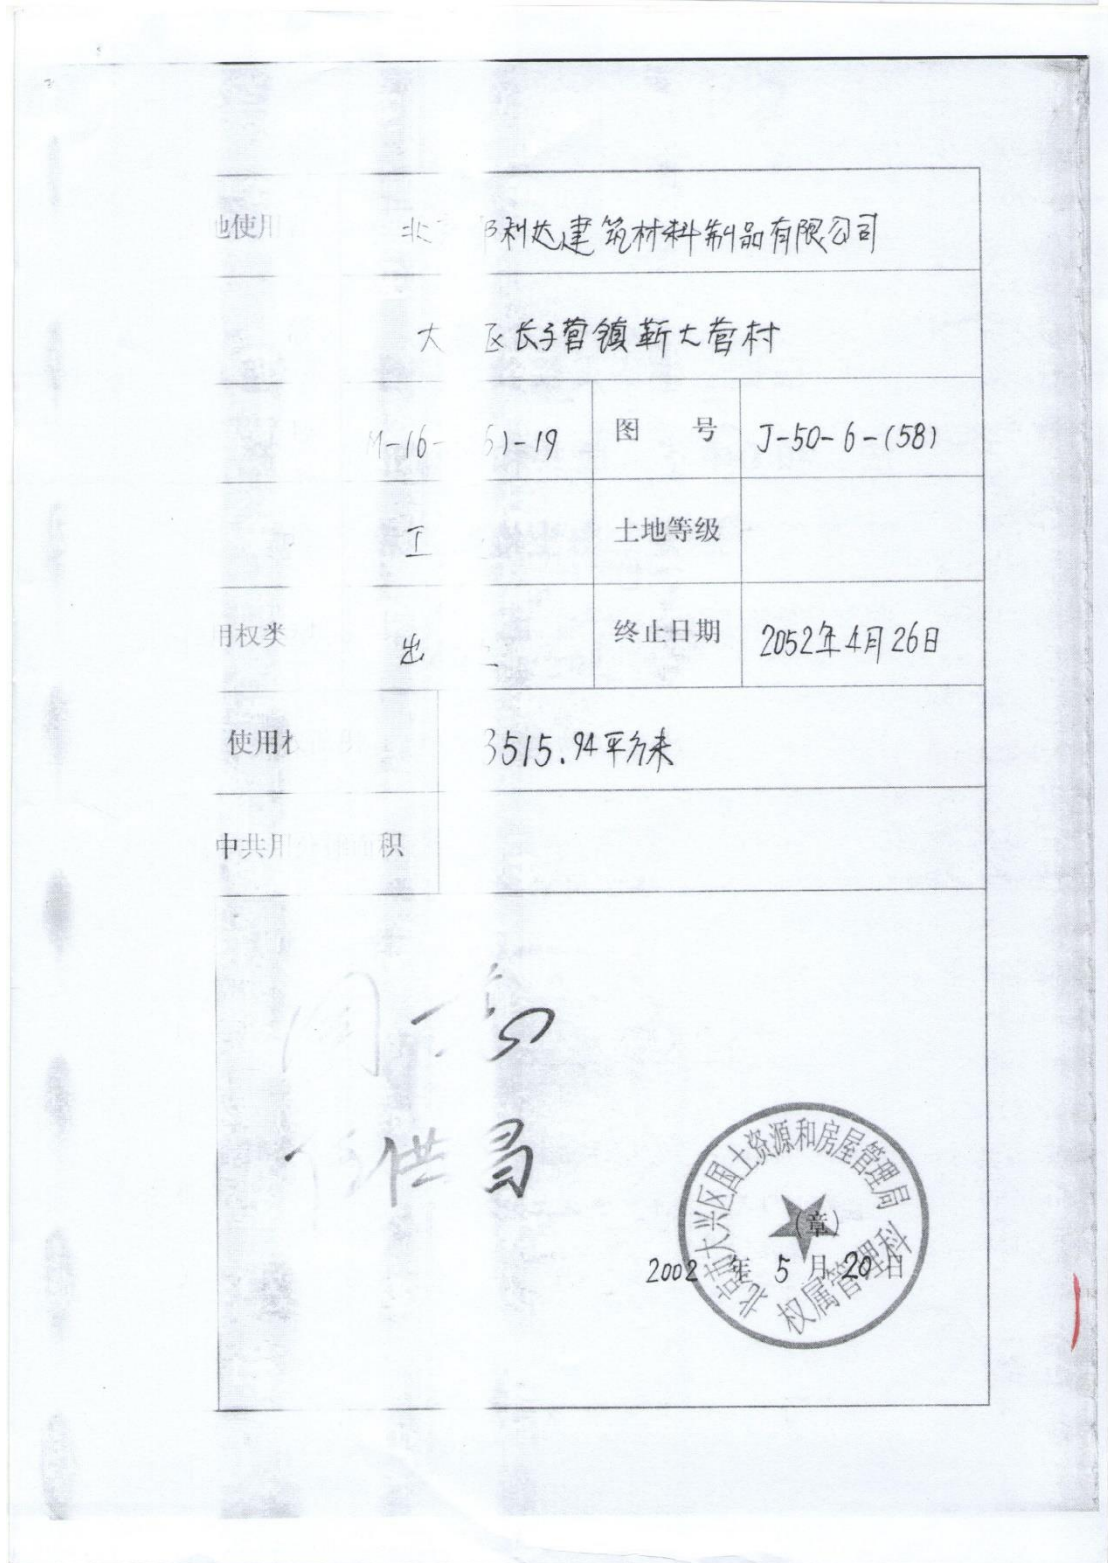 地使用
北 邦利达建筑材料制品有限公司
大 区长子营镇靳七营村
M-16- 6)-19 图 号 J-50-6-(58)
工 土地等级
用权类 出 终止日期 2052年4月26日
使用权 3515.94平方米
中共用 面积
洪昌
北京市大兴区国土资源和房屋管理局
(章)
2002 年 5 月 20 日
权属管理科